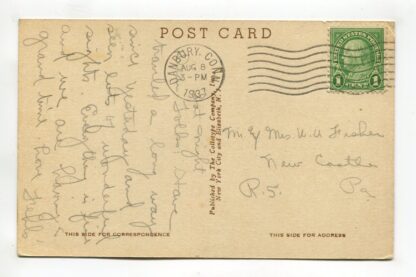 POST CARD
DANBURY, CONN.
AUG 8
3-PM
1937
1 CENT 1
night
Folks: Have
traveled a long way
since yesterday and
seen lots of wonderful
sights. Everything is fine
and we are having a
grand time.
Published by The Collotype Company,
New York City and Elizabeth, N. J.
Mr & Mrs. Fisher
New Castle
R.5. Pa.
THIS SIDE FOR CORRESPONDENCE
THIS SIDE FOR ADDRESS